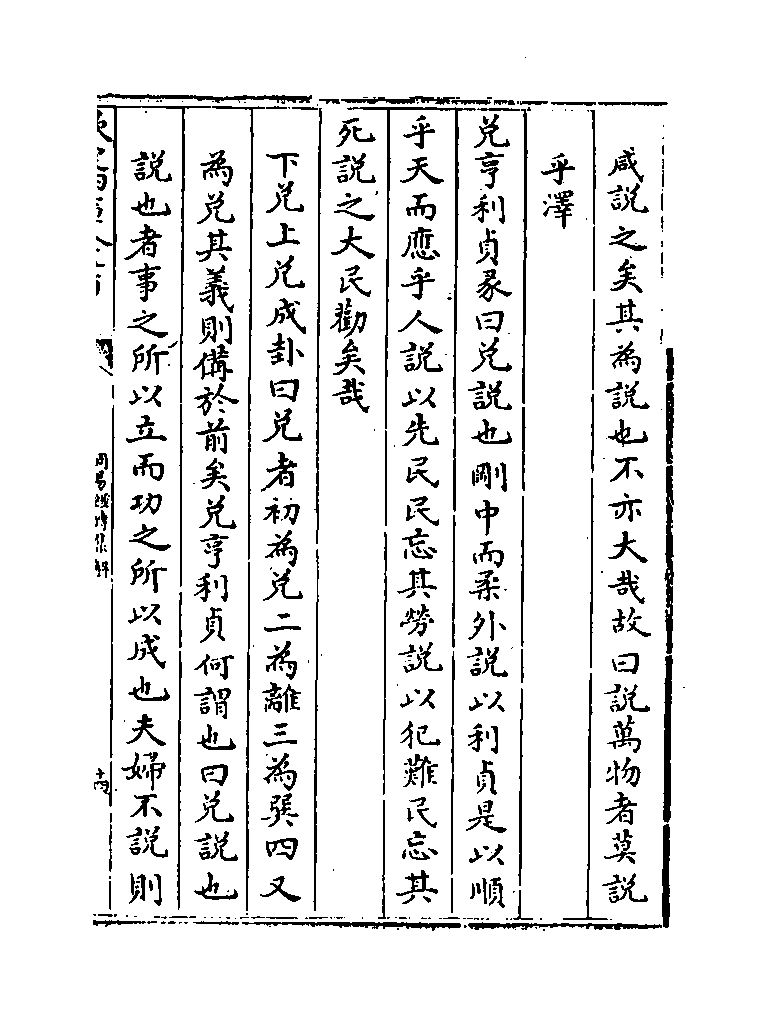 咸説之矣其為説也不亦大哉故曰説萬物者莫説
乎澤
兌亨利貞彖曰兌説也剛中而柔外説以利貞是以順
乎天而應乎人説以先民民忘其勞説以犯難民忘其
死説之大民勸矣哉
下兌上兌成卦曰兌者初為兌二為離三為巽四又
為兌其義則備於前矣兌亨利貞何謂也曰兌説也
説也者事之所以立而功之所以成也夫婦不説則
周易經傳集解